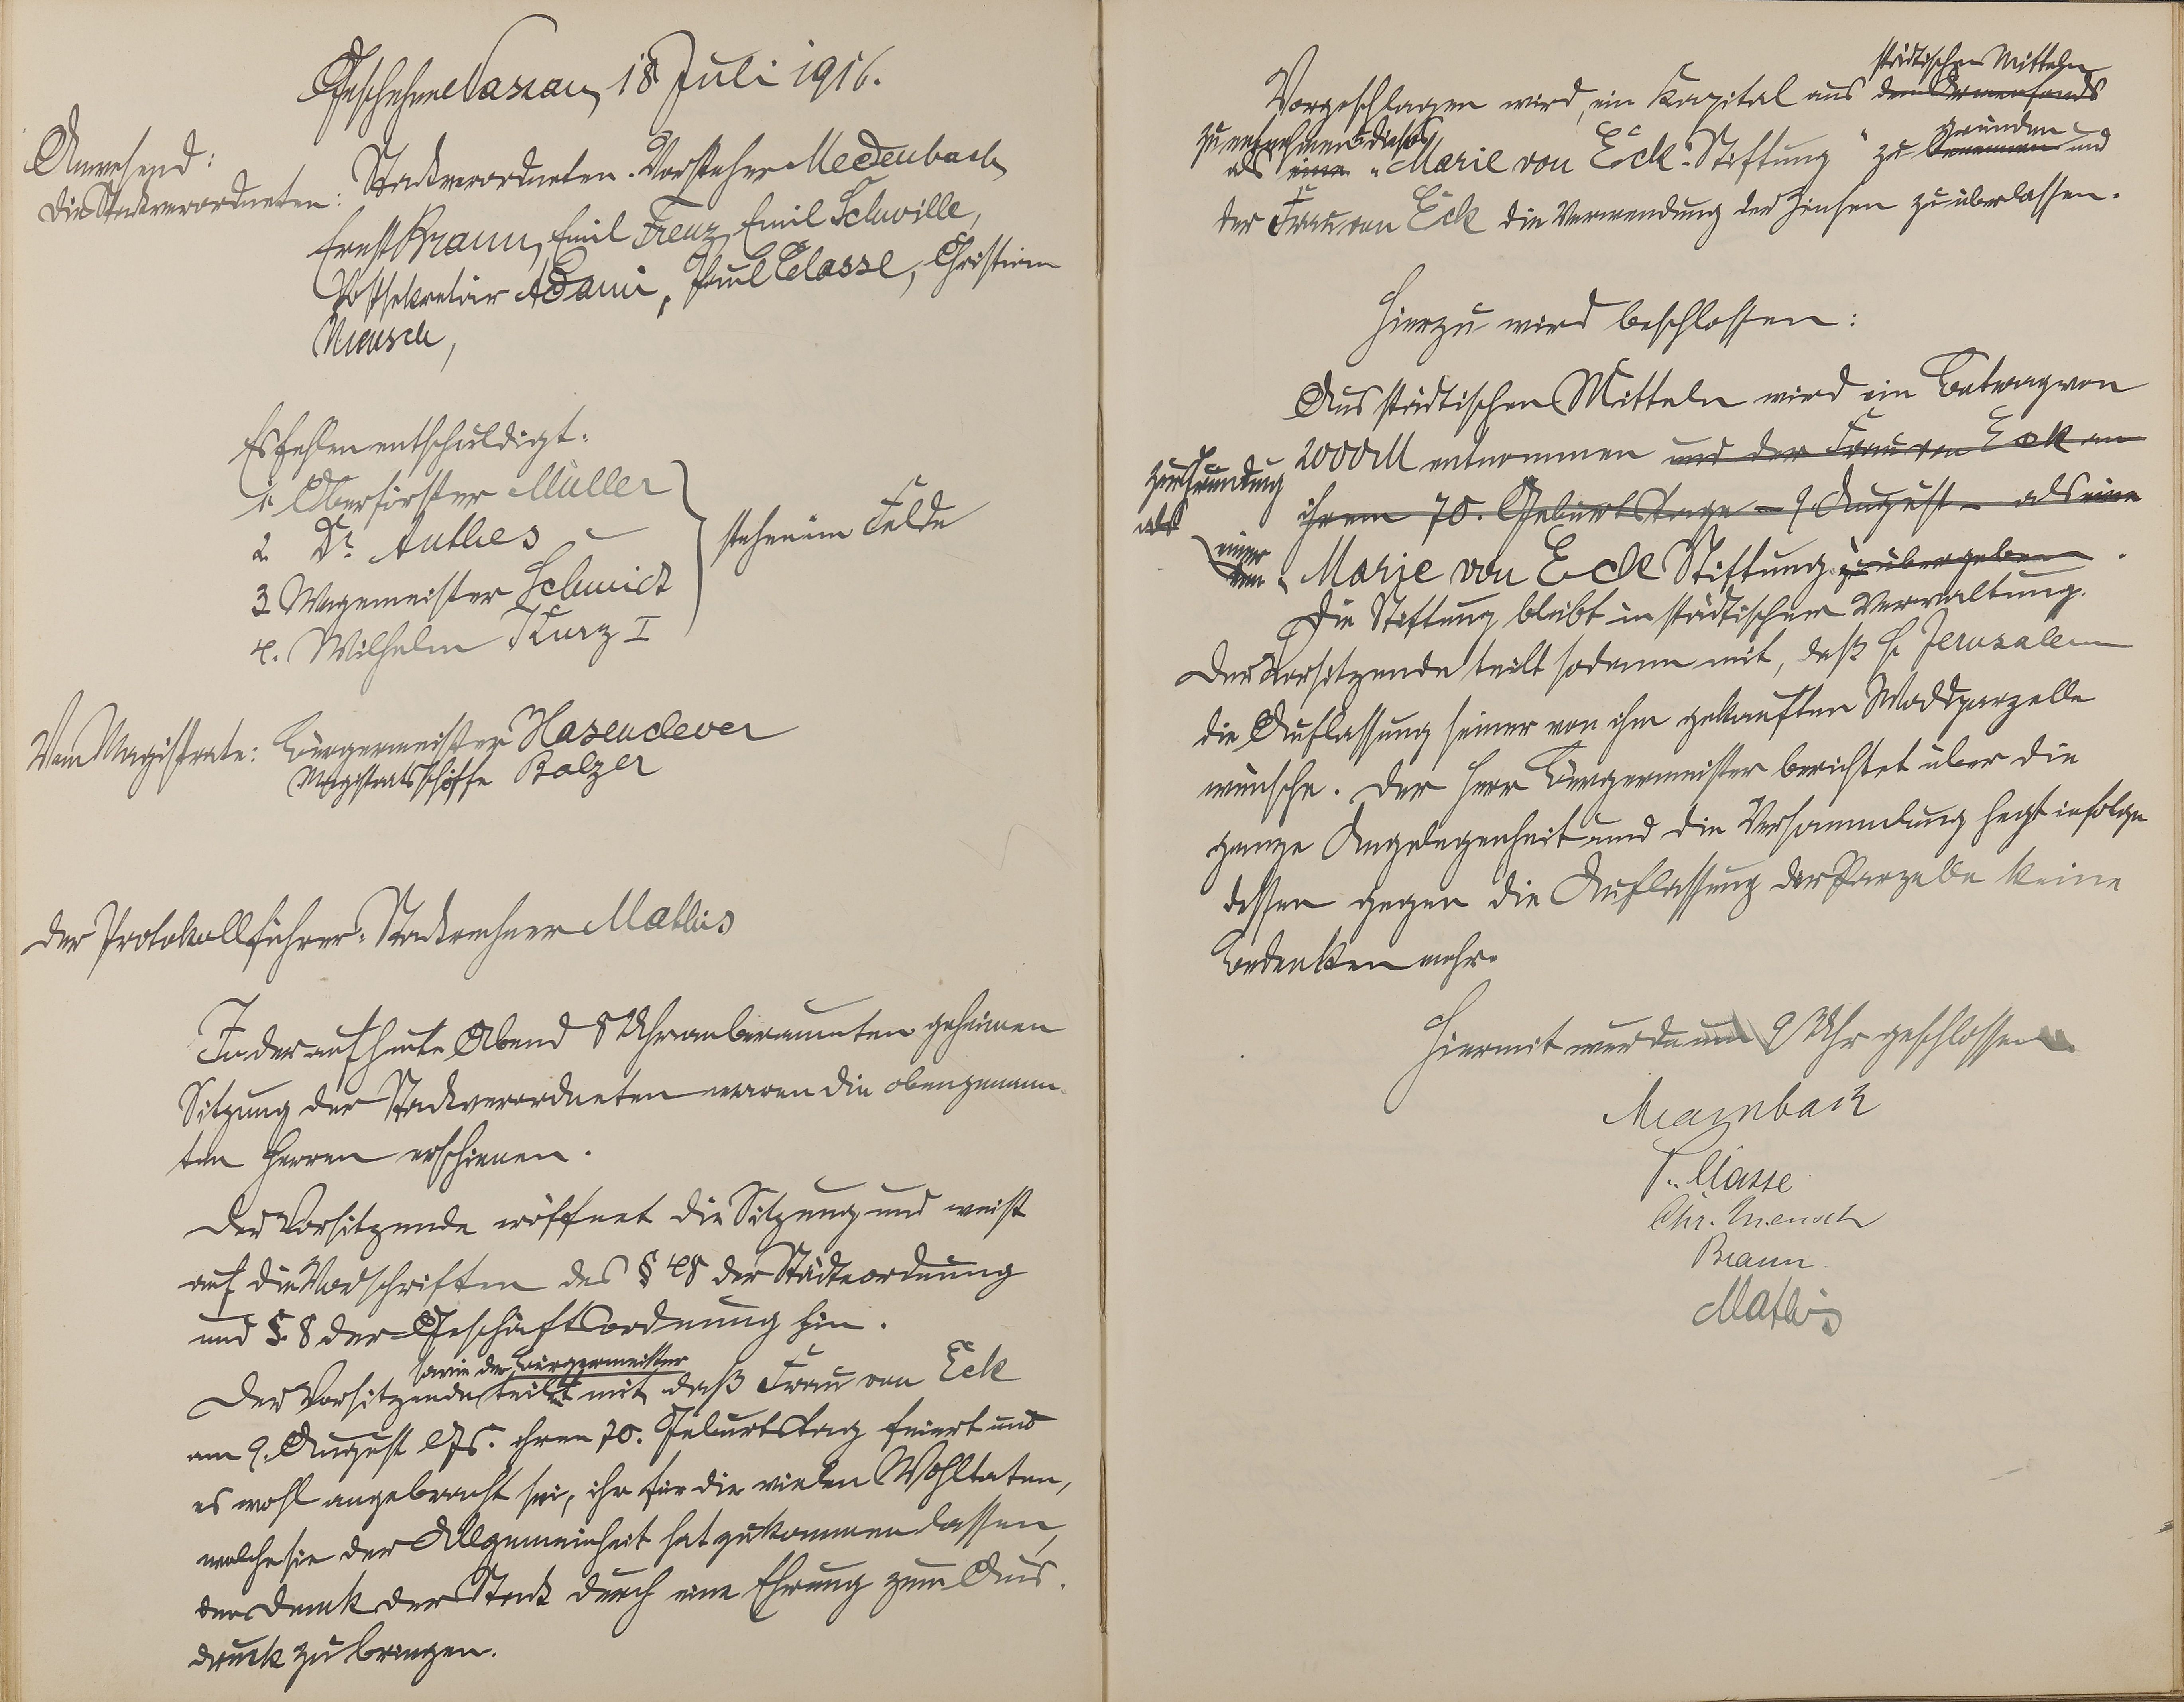 Geschehen Nassau, 18 Juli 1916.
Anwesend:
die Stadtverordneten: Stadtverordneten-Vorsteher Medenbach
Ernst Braun, Emil Frenz, Emil Schwille,
Postsekretär Adami, Paul Classe, Christian
Mensch,
Es fehlen entschuldigt:
1. Oberförster Müller
2 Dr. Anthes
3 Wagemeister Schmidt
4. Wilhelm Kurz I
stehen im Felde
Vom Magistrate: Bürgermeister Hasenclever
Magistratsschöffe Balzer
Der Protokollführer: Stadtrechner Mathis
In der auf heute Abend 8 Uhr anberaumten geheimen
Sitzung der Stadtverordneten waren die obengenann-
ten Herren erschienen.
Der Vorsitzende eröffnet die Sitzung und weist
auf die Vorschriften des § 48 der Städteordnung
und § 8 der Geschäftsordnung hin.
sowie der Bürgermeister
Der Vorsitzende teilt mit, daß Frau von Eck
am 9. August ds. Js. ihren 70. Geburtstag feiert und
es wohl angebracht sei, ihr für die vielen Wohltaten,
welche sie der Allgemeinheit hat zukommen lassen,
den Dank der Stadt durch eine Ehrung zum Aus-
druck zu bringen.
städtischen Mitteln
Vorgeschlagen wird, ein Kapital aus dem Armenfonds
zu entnehmen & dieses gründen
als eine „Marie von Eck-Stiftung“ zu benennen und
der Frau von Eck die Verwendung der Zinsen zu überlassen.
Hierzu wird beschlossen:
Aus städtischen Mitteln wird ein Betrag von
2000 M entnommen und der Frau von Eck an
zur Gründung
ihrem 70. Geburtstage – 9 August – als eine
als
einer
„Marie von Eck Stiftung zu übergeben.
Die Stiftung bleibt in städtischer Verwaltung.
Der Vorsitzende teilt sodann mit, daß H. Jerusalem
die Auflassung seiner von ihm gekauften Waldparzelle
wünsche. Der Herr Bürgermeister berichtet über die
ganze Angelegenheit und die Versammlung hegt infolge
dessen gegen die Auflassung der Parzelle keine
Bedenken mehr.
Hiermit wurde um 9 Uhr geschlossen.
Medenbach
P. Classe
Chr. Mensch
Braun.
Mathis